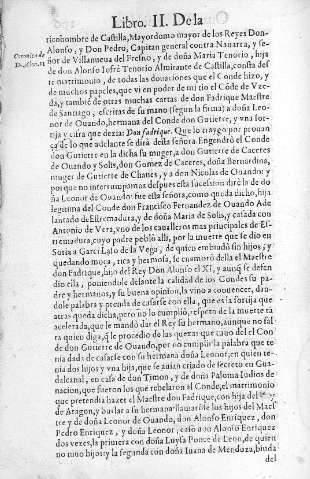 Libro. II. De la
ricohombre de Castilla, Mayordomo mayor de los Reyes Don
Alonso, y Don Pedro, Capitan general contra Nauarra, y se-
ñor de Villanueva del Fresno, y de doña Maria Tenorio, hija
de don Alonso Iofrè Tenorio Almirante de Castilla, consta des
te matrimonio, de todas las donaciones que el Conde hizo, y
de muchos papeles, que vi en poder de mi tio el Cõde de Vze-
da, y tambiẽ de otras muchas cartas de don Fadrique Maestre
de Santiago, escritas de su mano (segun la firma) a doña Leo-
nor de Ouando, hermana del Conde don Gutierre, y vna sor-
tija y cifra que dezia: Don fadrique. Que lo traygo por prouan
ça de lo que adelante se dirà desta señora. Engendrò el Conde
don Gutierre en la dicha su muger, a don Gutierre de Caceres
de Ouando y Solis, don Gomez de Caceres, doña Bernardina,
muger de Gutierre de Chaues, y a don Nicolas de Ouando: y
por que no interrumpamos despues esta sucession dirè la de do
ña Leonor de Ouando: fue esta señora, como queda dicho, hija
legitima del Conde don Francisco Fernandez de Ouando Ade
lantado de Estremadura, y de doña Maria de Solis, y casada con
Antonio de Vera, vno de los caualleros mas principales de Es-
tremadura, cuyo padre poblò alli, por la muerte que se dio en
Soria a Garci Laso de la Vega, de quien embiudò sin hijos, y
quedando moça, rica y hermosa, se enamorò della el Maestre
don Fadrique, hijo del Rey Don Alonso el XI, y aunq se defen
dio ella, poniendole delante la calidad de los Condes su pa-
dre y hermanos, y su buena opinion, la vino a conuencer, dan-
dole palabra y prenda de casarse con ella, que es la sortija que
atras queda dicha, pero no lo cumpliò, respeto de la muerte tã
acelerada, que le mandò dar el Rey su hermano, aunque no fal
ta quien diga, q le procedio de las quexas que tuuo del el Con
de don Gutierre de Ouando, por no cumplir la palabra que te
nia dada de casarse con su hermana doña Leonor, en quien te-
nia dos hijos y vna hija, que se auian criado de secreto en Gua-
dalcanal, en casa de don Timon, y de doña Paloma Iudios de
nacion, que fueron los que rebelaron al Conde, el matrimonio
que pretendia hazer el Maestre don Fadrique, con hija del Rey
de Aragon, y burlar a su hermana: llamarõse los hijos del Maes
tre y de doña Leonor de Ouando, don Alonso Enriquez, don
Pedro Enriquez, y doña Leonor, casò don Alonso Enriquez
dos vezes, la primera con doña Luysa Ponce de Leon, de quien
no tuuo hijos: y la segunda con doña Iuana de Mendoza, biuda
del